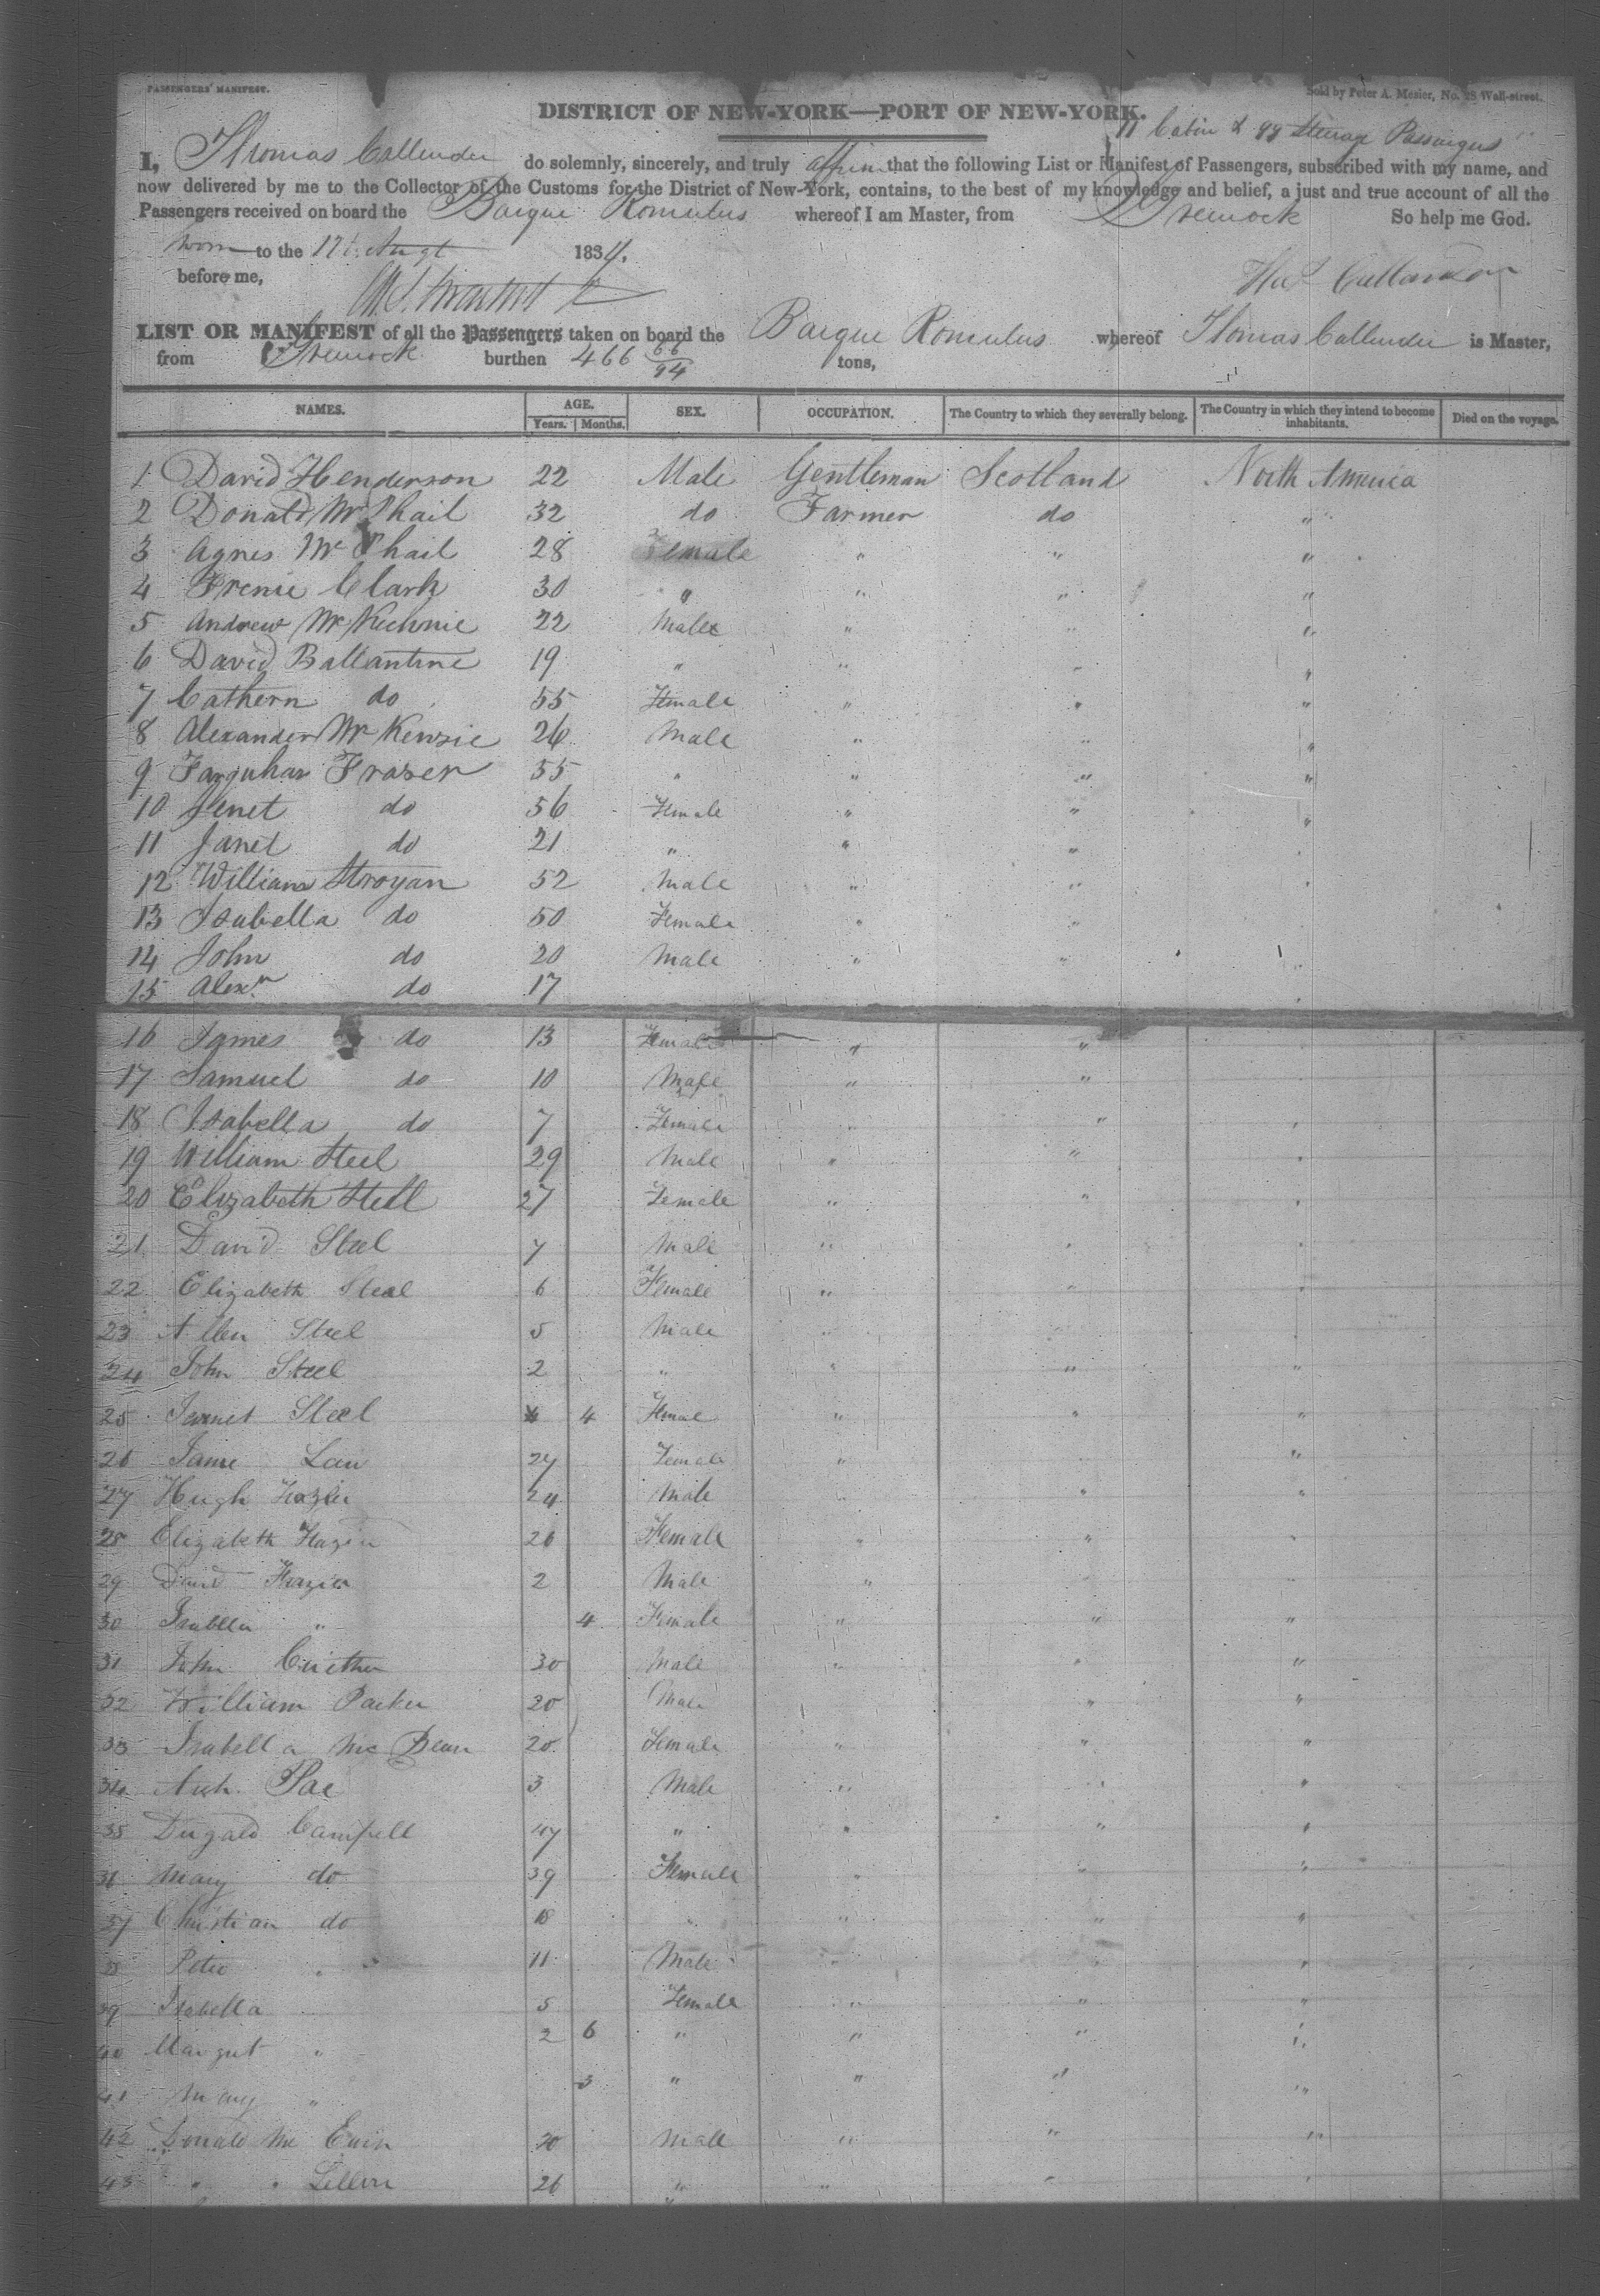 PASSENGERS' MANIFEST.
Sold by Peter A. Mesier, No. 28 Wall-street.
DISTRICT OF NEW-YORK—PORT OF NEW-YORK.
11 Cabin & 99 Steerage Passengers
I, Thomas Callender do solemnly, sincerely, and truly affirm that the following List or Manifest of Passengers, subscribed with my name, and
now delivered by me to the Collector of the Customs for the District of New-York, contains, to the best of my knowledge and belief, a just and true account of all the
Passengers received on board the Barque Romulus whereof I am Master, from Greenock So help me God.
Sworn to the 12 Augt 1834.
before me,
Thos Callender
LIST OR MANIFEST of all the Passengers taken on board the Barque Romulus whereof Thomas Callender is Master,
from Greenock burthen 466 66/94 tons,
NAMES. AGE. SEX. OCCUPATION. The Country to which they severally belong. The Country in which they intend to become inhabitants. Died on the voyage.
Years. Months.
1 David Henderson 22 Male Gentleman Scotland North America
2 Donald McPhail 32 do Farmer do "
3 Agnes McPhail 28 Female " " "
4 Frenie Clark 30 " " " "
5 Andrew McKechnie 22 Male " " "
6 David Ballantine 19 " " " "
7 Cathern do 55 Female " " "
8 Alexander McKenzie 26 Male " " "
9 Farquhar Fraser 55 " " " "
10 Jenet do 56 Female " " "
11 Janet do 21 " " " "
12 William Stroyan 52 Male " " "
13 Isabella do 50 Female " "
14 John do 20 Male " " "
15 Alexr do 17
16 James do 13 Female " "
17 Samuel do 10 Male " "
18 Isabella do 7 Female " "
19 William Steel 29 Male " " "
20 Elizabeth Steel 27 Female " " "
21 David Steel 7 Male " " "
22 Elizabeth Steel 6 Female " " "
23 Allen Steel 5 Male "
24 John Steel 2 " " " "
25 Jannet Steel 4 Femal " " "
26 Jane Law 27 Female " "
27 Hugh Frazier 24 Male " " "
28 Elizabeth Frazier 26 Female " " "
29 David Frazier 2 Male " "
30 Isabella " 4 Female " " "
31 John 30 Male " " "
32 William Parker 20 Male " "
33 Isabella McBean 20 Female " " "
34 Arch. Rae 3 Male " " "
35 Dugald Campell 47 " " " "
36 Mary do 39 Female " " "
37 Christian do 18 " " " "
38 Peter " 11 Male " " "
39 Isabella 5 Female " " "
40 Margret " 2 6 " " " "
41 Mary " 3 " " " "
42 Donald Mc Ewin 30 Male " " "
43 " " 26 " " " "